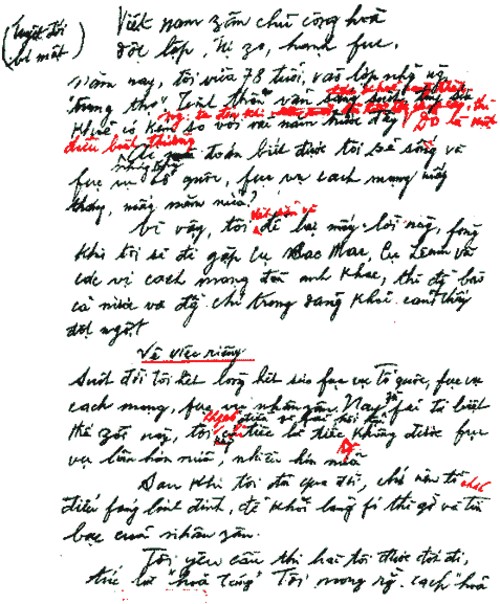 (Tuyệt đối
bí mật)
Việt nam zân chủ cộng hoà
độc lập, tự zo, hạnh fúc.
Năm nay, tôi vừa 78 tuổi, vào lớp những ng.
"trung thọ". Tinh thần vẫn sáng suốt
khoẻ có kém so với vài năm trước đây. Đó là một
điều bình thường.
Nhưng ai mà đoán biết được tôi sẽ sống và
fục vụ tổ quốc, fục vụ cách mạng mấy
tháng, mấy năm nữa?
Vì vậy, tôi viết sẵn và để lại mấy lời này, fòng
khi tôi sẽ đi gặp cụ Các Mác, Cụ Lênin và
các vị cách mạng đàn anh khác, thì đg bào
cả nước và đg chí trong đảng khỏi cảm thấy
đột ngột.
Về việc riêng.
Suốt đời tôi hết lòng hết sức fục vụ Tổ quốc, fục vụ
cách mạng, fục vụ nhân zân. Nay zù fải từ biệt
thế zới này, tôi chỉ tiếc là tiếc không được fục
vụ lâu hơn nữa, nhiều hơn nữa
Sau khi tôi đã qua đời, chớ nên tổ chức
điếu fúng linh đình, để khỏi lãng fí thì zờ và tiền
bạc của nhân zân.
Tôi yêu cầu thi hài tôi được đốt đi,
tức là "hoả táng". Tôi mong rg. cách "hoả